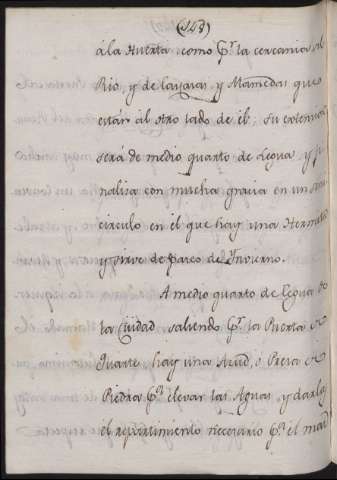 (148)
á la Huerta como p.r la cercania al
Rio, y de las casas y Alamedas que
están al otro lado de él; su extencion
será de medio quarto de Legua y fi
naliza con mucha gracia en un semi
circulo en él que hay una Hermita
y sirve de paseo de Ynvierno.
A medio quarto de Legua de
la Ciudad saliendo p.r la Puerta de
Quarte hay una Azud, o Presa de
Piedra p.a elevar las Aguas, y darlas
el repartimiento necesario p.a el mad